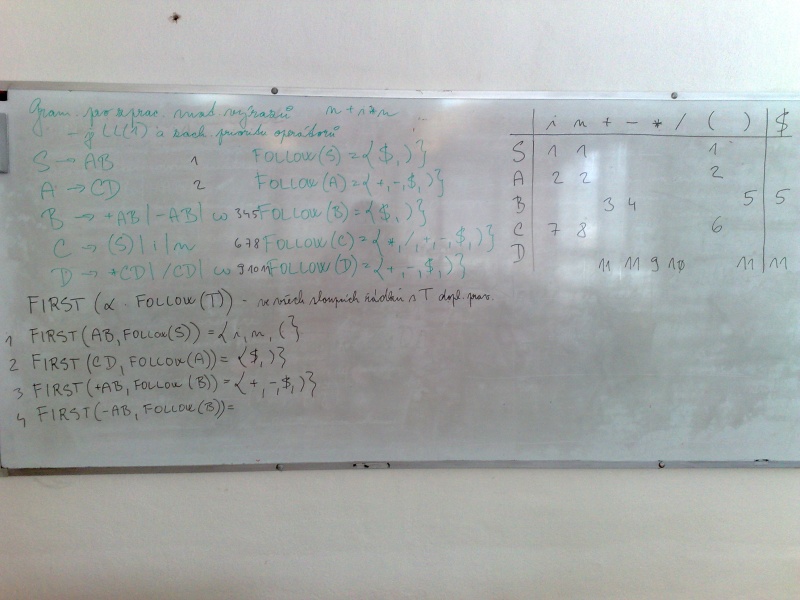 Gram. pro zprac. mat. výrazů n + i * n
- je LL(1) a zach. prioritu operátorů
S → AB 1 FOLLOW(S) = {$,)}
A → CD 2 FOLLOW(A) = {+,-,$,)}
B → +AB|-AB| ω 345 FOLLOW(B) = {$,)}
C → (S)|i|n 678 FOLLOW(C) = {*,/,+,-,$,)}
D → *CD|/CD| ω 91011 FOLLOW(D) = {+,-,$,)}
FIRST(α. FOLLOW(T)) - ve všech sloupcích řádku s T dopl. prav.
1 FIRST(AB, FOLLOW(S)) = {i, n, (}
2 FIRST(CD, FOLLOW(A)) = {$,)}
3 FIRST(+AB, FOLLOW(B)) = {+,-,$,)}
4 FIRST(-AB, FOLLOW(B)) =
i n + - * / ( ) $
S 1 1 1
A 2 2 2
B 3 4 5 5
C 7 8 6
D 11 11 9 10 11 11